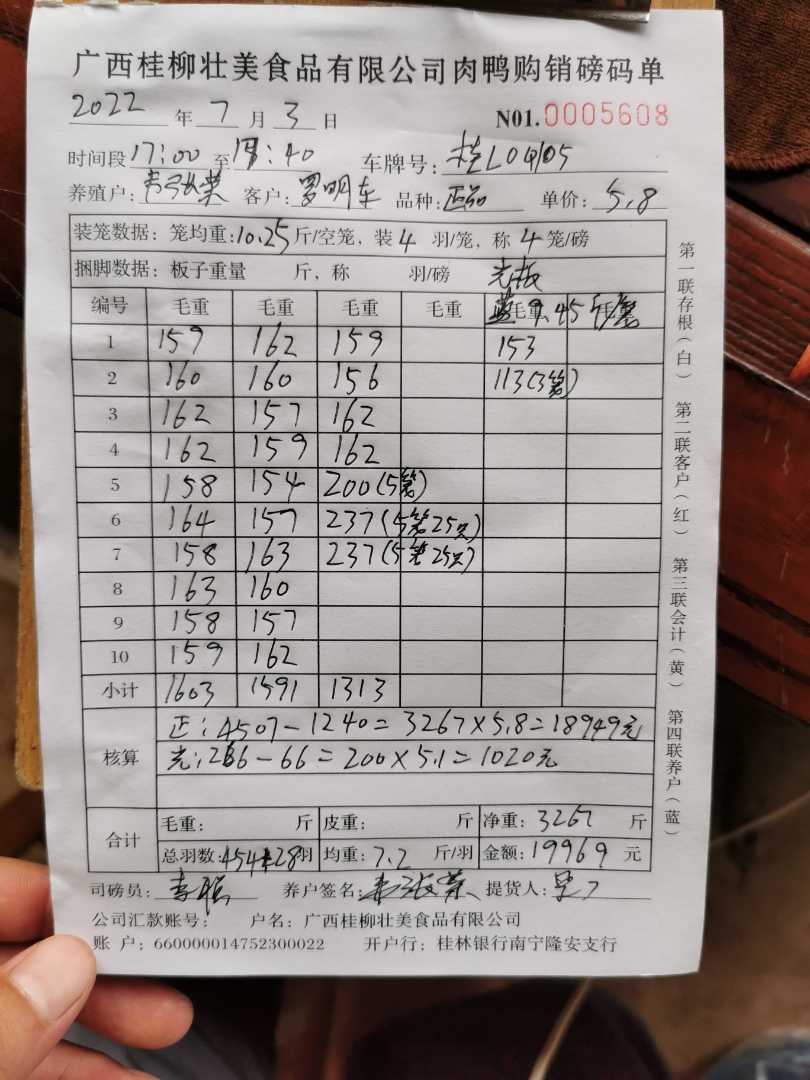 广西桂柳壮美食品有限公司肉鸭购销磅码单
2022 年 7 月 3 日 N01.0005608
时间段 17:00 至 18:40 车牌号: 桂L
养殖户: 客户: 罗明车 品种: 正品 单价: 5.8
装笼数据: 笼均重: 10.25 斤/空笼, 装 4 羽/笼, 称 4 笼/磅
捆脚数据: 板子重量 斤, 称 羽/磅 光板
编号 毛重 毛重 毛重 毛重 毛重 9.45
1 159 162 159 153
2 160 160 156 113(3笼)
3 162 157 162
4 162 159 162
5 158 154 200(5笼)
6 164 157 237(5笼25只)
7 158 163 237(5笼25只)
8 163 160
9 158 157
10 159 162
小计 1603 1591 1313
核算
正: 4507-1240=3267×5.8=18949元
光: 266-66=200×5.1=1020元
合计
毛重: 斤 皮重: 斤 净重: 3267 斤
总羽数: 454+28羽 均重: 7.2 斤/羽 金额: 19969 元
司磅员: 养户签名: 提货人:
公司汇款账号: 户名: 广西桂柳壮美食品有限公司
账 户: 660000014752300022 开户行: 桂林银行南宁隆安支行
第一联存根(白) 第二联客户(红) 第三联会计(黄) 第四联养户(蓝)